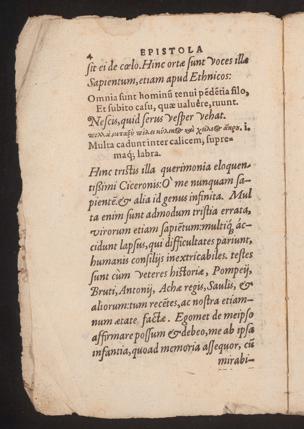 4 EPISTOLA
sit ei de cœlo. Hinc ortæ sunt voces illæ
Sapientum, etiam apud Ethnicos:
Omnia sunt hominū tenui pēdētia filo,
Et subito casu, quæ valuêre, ruunt.
Nescis, quid serus vesper vehat.
i.
Multa cadunt inter calicem, supre-
maq́; labra.
Hinc tristis illa querimonia eloquen-
tissimi Ciceronis: O me nunquam sa-
pientē & alia id genus infinita. Mul
ta enim sunt admodum tristia errata,
virorum etiam sapiētum: multiq́; ác-
cidunt lapsus, qui difficultates pariunt,
humanis consilijs inextricabiles. testes
sunt cùm veteres historiæ, Pompeij,
Bruti, Antonij, Achæ regis, Saulis, &
aliorum: tum recētes, ac nostra etiam-
num ætate factæ. Egomet de meipso
affirmare possum & debeo, me ab ipsa
infantia, quoad memoria assequor, cū
mirabi-